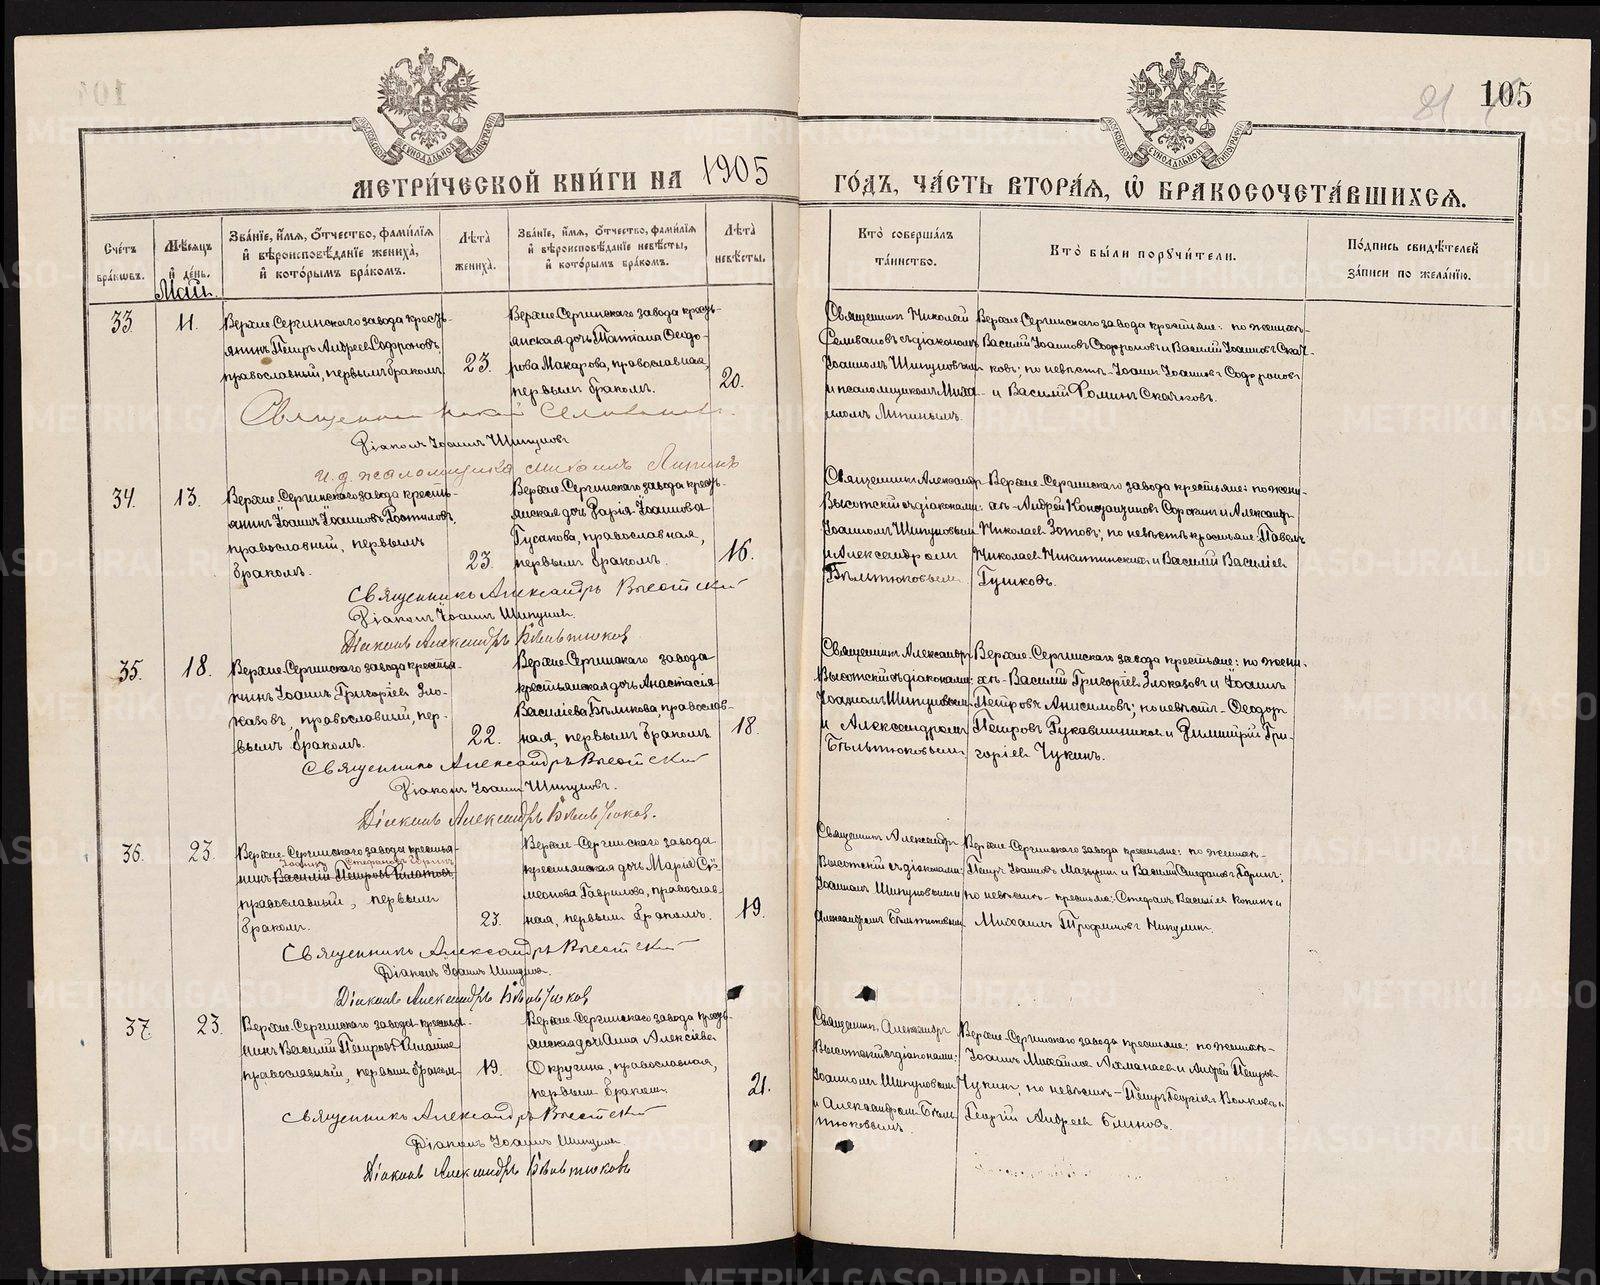 105
81
МЕТРИ́ЧЕСКОЙ КНИ́ГИ НА 1905 ГО́ДЪ, ЧА́СТЬ ВТОРА́Я, Ѽ БРАКОСОЧЕТА́ВШИХСЯ.
Сче́тъ бра́кѡвъ.
Мѣсяцъ и́ де́нь.
Зва́нїе, и́мя, ѻ́тчество, фами́лїя и́ вѣроисповѣ́данїе жениха̀, и́ кото́рымъ бра́комъ.
Лѣ́та жениха̀.
Зва́нїе, и́мя, ѻ́тчество, фами́лїя и́ вѣроисповѣ́данїе невѣ́сты, и́ кото́рымъ бра́комъ.
Лѣ́та невѣ́сты.
Кто̀ соверша́лъ та́инство.
Кто̀ бы́ли порꙋчи́тели.
По́дпись свидѣ́телей за́писи по жела́нїю.
Май.
33
11.
Верхне-Сергинскаго завода кресть-
янинъ Петръ Андреевъ Софроновъ,
православный, первымъ бракомъ.
23.
Верхне-Сергинскаго завода кресть-
янская дочь Татіана Ѳеодо-
рова Макарова, православная,
первымъ бракомъ.
20.
Священникъ Николай
Селивановъ съ діакономъ
Іоанномъ Шипуновымъ
и псаломщикомъ Миха-
иломъ Липинымъ.
Верхне-Сергинскаго завода крестьяне: по женихѣ-
Василій Іоанновъ Софроновъ и Василій Іоанновъ Скач-
ковъ; по невѣстѣ - Іоаннъ Іоанновъ Софроновъ
и Василій Ѳоминъ Скачковъ.
Священникъ Николай Селивановъ.
Діаконъ Іоаннъ Шипуновъ
и. д. псаломщика Михаилъ Липинъ
34.
13.
Верхне-Сергинскаго завода кресть-
янинъ Іоаннъ Іоанновъ
православный, первымъ
бракомъ.
23.
Верхне-Сергинскаго завода кресть-
янская дочь Дарія Іоаннова
Гусакова, православная,
первымъ бракомъ.
16.
Священникъ Александръ
Высотскій съ діаконами:
Іоанномъ Шипуновымъ
и Александромъ
Бѣльтюковымъ.
Верхне-Сергинскаго завода крестьяне: по жени-
хѣ - Андрей Константиновъ Сорокинъ и Александръ
Николаевъ Зотовъ; по невѣстѣ крестьяне Павелъ
Николаевъ Никитинскихъ и Василій Василіевъ
Глушковъ.
Священникъ Александръ Высотскій
Діаконъ Іоаннъ Шипуновъ.
Діаконъ Александръ Бѣльтюковъ
35.
18.
Верхне-Сергинскаго завода крестья-
нинъ Іоаннъ Григоріевъ Зло-
казовъ, православный, пер-
вымъ бракомъ.
22.
Верхне-Сергинскаго завода
крестьянская дочь Анастасія
Василіева Бѣликова, православ-
ная, первымъ бракомъ.
18.
Священникъ Александръ
Высотскій съ діаконами:
Іоанномъ Шипуновымъ
и Александромъ
Бѣльтюковымъ.
Верхне-Сергинскаго завода крестьяне: по жени-
хѣ - Василій Григоріевъ Злоказовъ и Іоаннъ
Петровъ Анисимовъ; по невѣстѣ - Ѳеодоръ
Петровъ Рукавишниковъ и Димитрій Гри-
горіевъ Чукинъ.
Священникъ Александръ Высотскій
Діаконъ Іоаннъ Шипуновъ.
Діаконъ Александръ Бѣльтюковъ.
36.
23.
Верхне-Сергинскаго завода крестья-
Іоаннъ Стефановъ Горинъ
нинъ Василій Петровъ Филатовъ
православный, первымъ
бракомъ.
23.
Верхне-Сергинскаго завода
крестьянская дочь Марія Си-
меонова Гаврилова, православ-
ная, первымъ бракомъ.
19.
Священникъ Александръ
Высотскій съ діаконами:
Іоанномъ Шипуновымъ и
Александромъ Бѣльтюковымъ
Верхне-Сергинскаго завода крестьяне: по женихѣ-
Петръ Іоанновъ Мазуринъ и Василій Стефановъ Горинъ;
по невѣстѣ - крестьяне: Стефанъ Василіевъ Копинъ и
Михаилъ Трофимовъ Никулинъ.
Священникъ Александръ Высотскій
Діаконъ Іоаннъ Шипуновъ.
Діаконъ Александръ Бѣльтюковъ
37.
23.
Верхне-Сергинскаго завода крестья-
нинъ Василій Петровъ Филатовъ
православный, первымъ бракомъ
19.
Верхне-Сергинскаго завода кресть-
янская дочь Анна Алексіева
Округина, православная,
первымъ бракомъ.
21.
Священникъ Александръ
Высотскій съ діаконами:
Іоанномъ Шипуновымъ
и Александромъ Бѣль-
тюковымъ.
Верхне-Сергинскаго завода крестьяне: по женихѣ-
Іоаннъ Михайловъ Ахманаевъ и Андрей Петровъ
Чукинъ, по невѣстѣ - Петръ Георгіевъ Волковъ и
Георгій Андреевъ Блиновъ.
Священникъ Александръ Высотскій
Діаконъ Іоаннъ Шипуновъ.
Діаконъ Александръ Бѣльтюковъ
METRIKI.GASO-URAL.RU